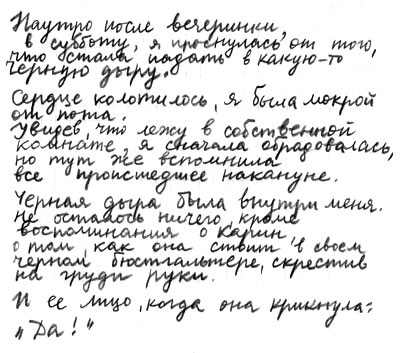 Наутро после вечеринки,
в субботу, я проснулась от того,
что стала падать в какую-то
черную дыру.
Сердце колотилось, я была мокрой
от пота.
Увидев, что лежу в собственной
комнате, я сначала обрадовалась,
но тут же вспомнила
все происшедшее накануне.
Черная дыра была внутри меня.
Не осталось ничего, кроме
воспоминания о Карин,
о том, как она стоит в своем
черном бюстгальтере, скрестив
на груди руки.
И ее лицо, когда она крикнула:
„Да!"